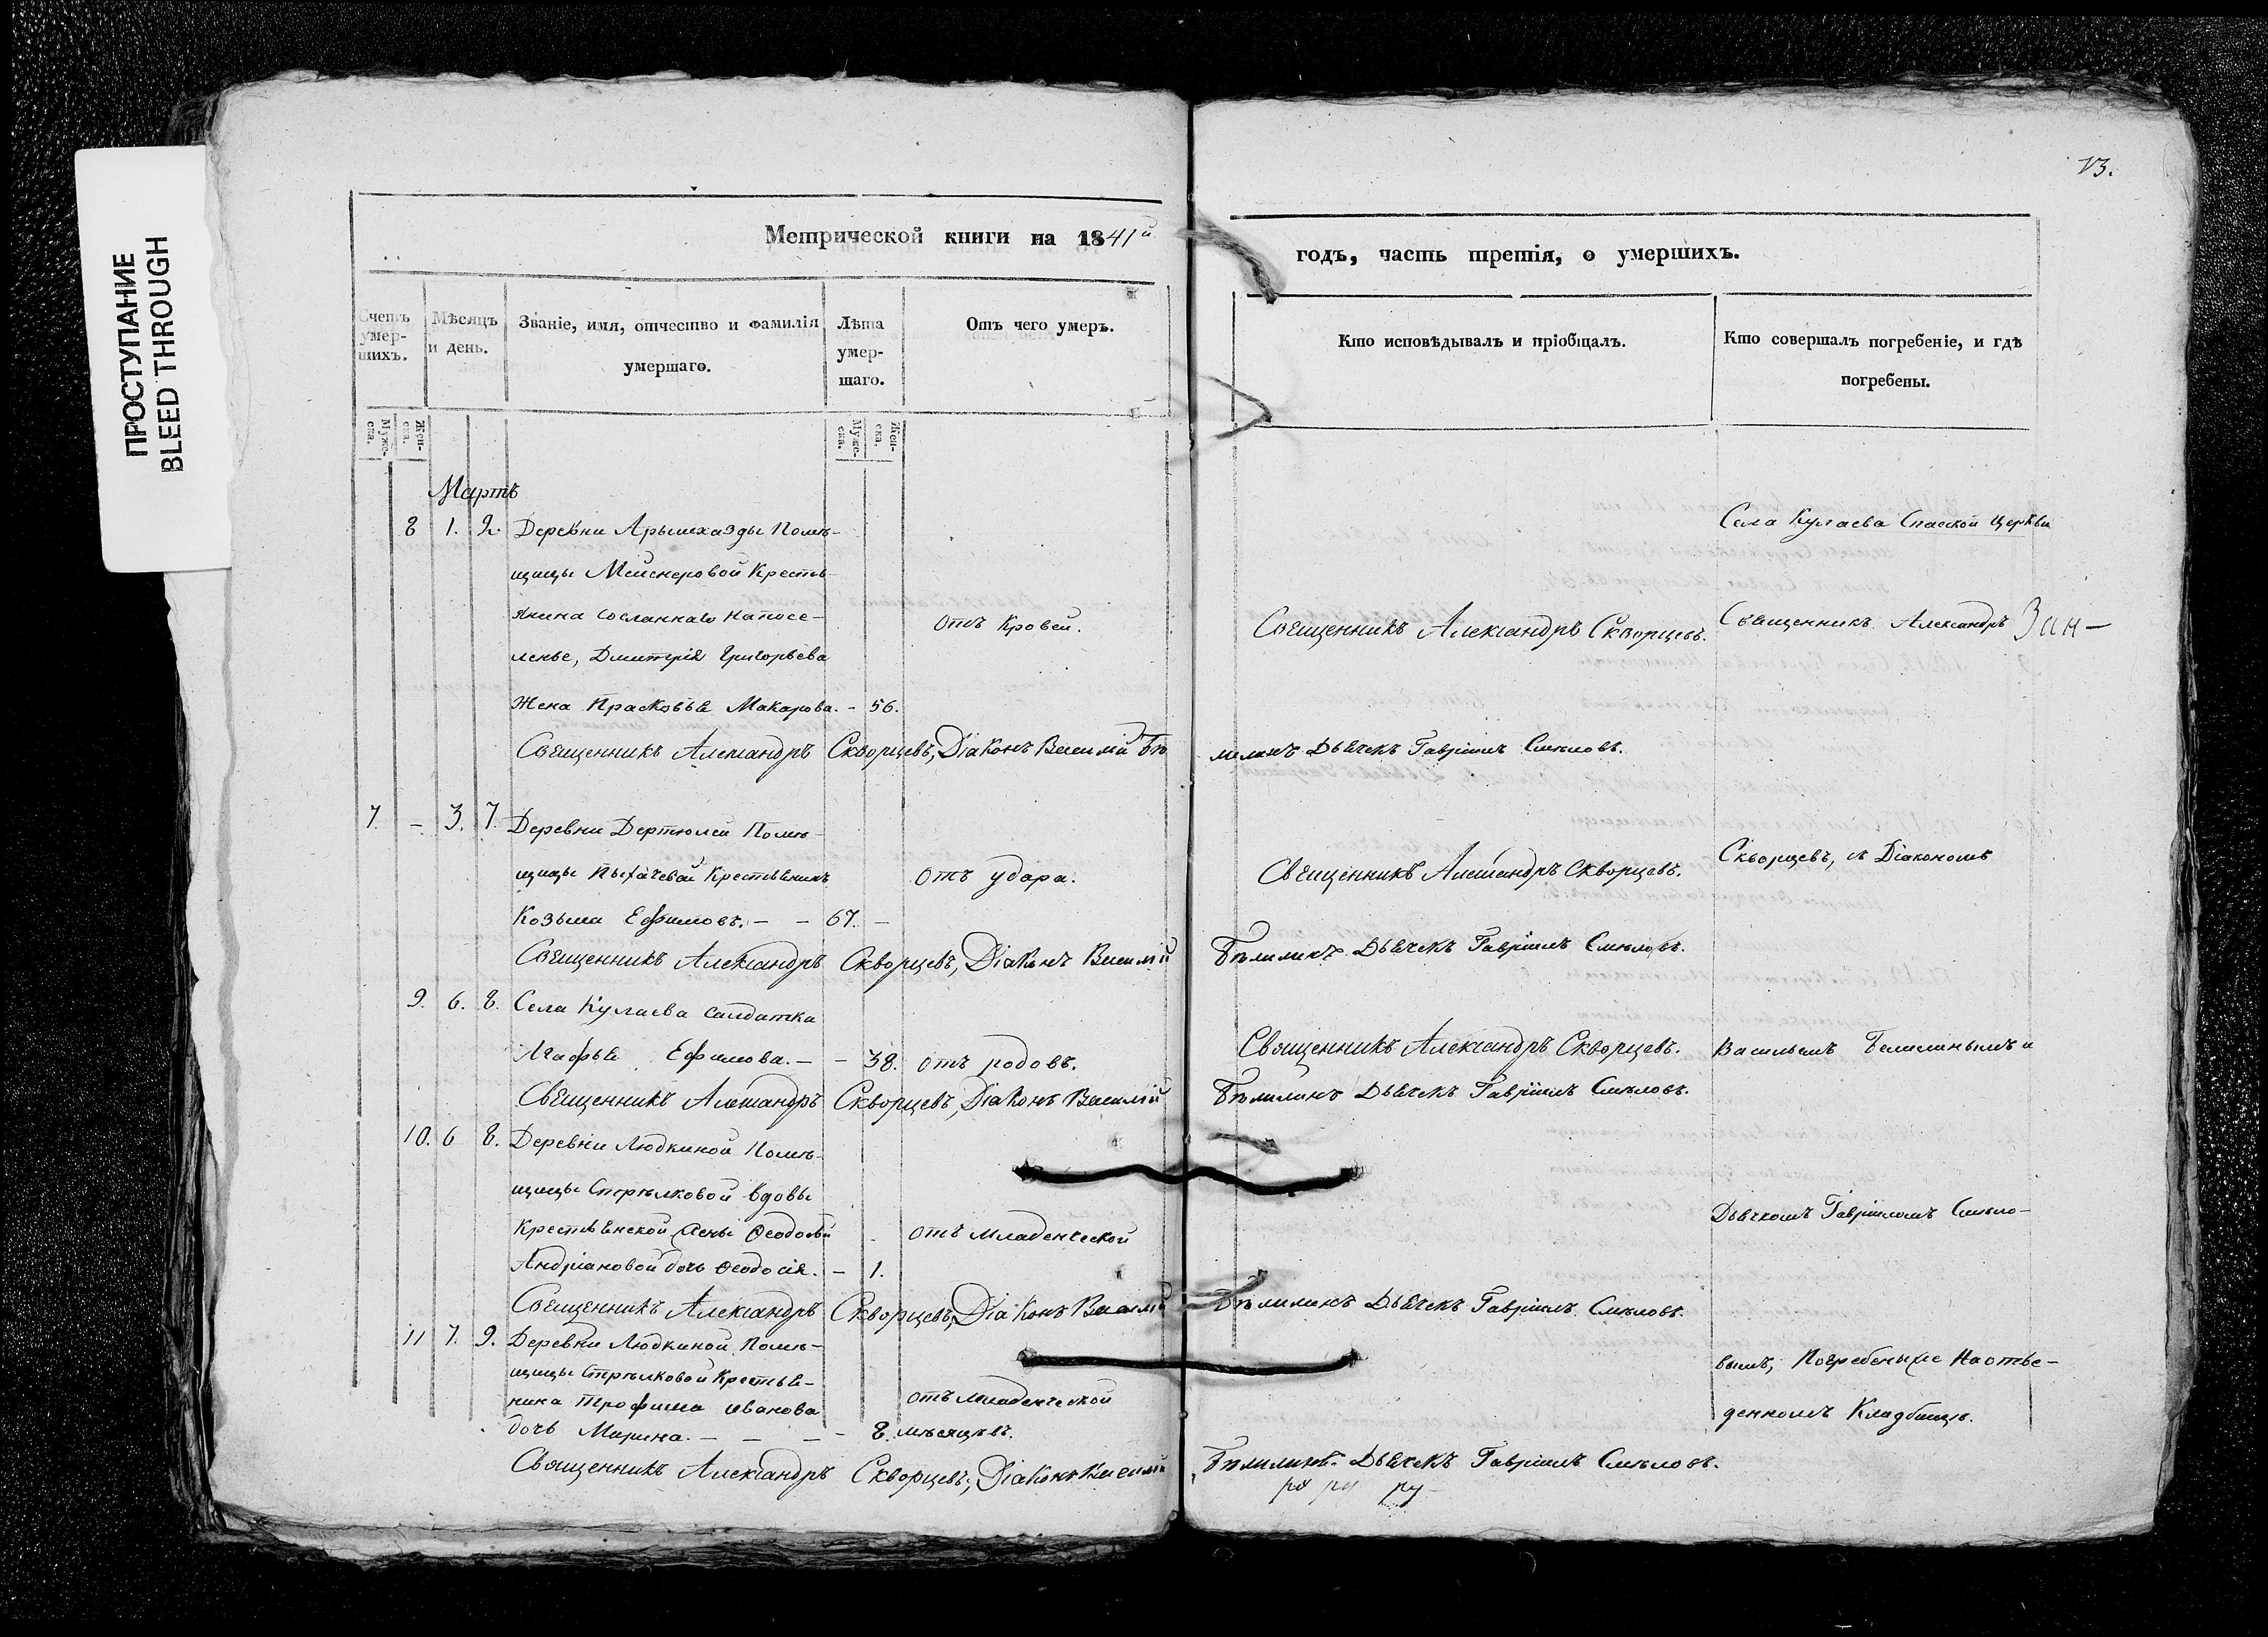 ПРОСТУПАНИЕ
BLEED THROUGH
13.
Метрической книги на 1841й
годъ, часть третія, о умершихъ.
Счетъ умер-
шихъ.
Мѣсяцъ
и день.
Званіе, имя, отчество и фамилія
умершаго.
Лѣта
умер-
шаго.
Отъ чего умеръ.
Кто исповѣдывалъ и пріобщалъ.
Кто совершалъ погребеніе, и гдѣ
погребены.
Муже-
ска.
Жен-
ска.
Муже-
ска.
Жен-
ска.
Мартъ
8 1. 2. Деревни Арышхазды Помѣ-
щицы Мейснеровой Кресть-
янина сосланнаго на посе-
ленье, Дмитрія Григорьева
Жена Прасковья Макарова. - 56.
отъ Кровей.
Священникъ Александръ Скворцевъ.
Села Кулаева Спаской Церкви
Священникъ Александръ
Священникъ Александръ Скворцевъ, Діаконъ Василій Бѣ
лилинъ Дьячекъ Гавріилъ Смѣловъ.
7. - 3. 7. Деревни Дертюлей Помѣ-
щицы Пыхачевой Крестьянинъ
Козьма Ефимовъ. - - 67. -
отъ удара.
Священникъ Александръ Скворцевъ.
Скворцевъ, съ Діакономъ
Священникъ Александръ Скворцевъ, Діаконъ Василій
Бѣлилинъ Дьячекъ Гавріилъ Смѣловъ.
9. 6. 8. Села Кулаева салдатка
Агафья Ефимова. - - 38. отъ родовъ.
Священникъ Александръ Скворцевъ.
Васильемъ Белилинымъ и
Священникъ Александръ Скворцевъ, Діаконъ Василій
Бѣлилинъ Дьячекъ Гавріилъ Смѣловъ.
10. 6 8. Деревни Людкиной Помѣ-
щицы Стрѣлковой вдовы
Крестьянской Жены Ѳеодосьи
Андріановой дочь Ѳеодосія. - 1.
отъ младенческой
Дьячкомъ Гавріиломъ Смѣло-
Священникъ Александръ Скворцевъ, Діаконъ Василій
Бѣлилинъ Дьячекъ Гавріилъ Смѣловъ.
11 7. 9. Деревни Людкиной Помѣ-
щицы Стрѣлковой Крестья-
нина Трофима Иванова
дочь Марина. - - - - 8. мѣсяцевъ.
отъ младенческой
вымъ, Погребены же На отве-
денномъ Кладбищѣ.
Священникъ Александръ Скворцевъ, Діаконъ Василій
Бѣлилинъ Дьячекъ Гавріилъ Смѣловъ.
ру ру ру